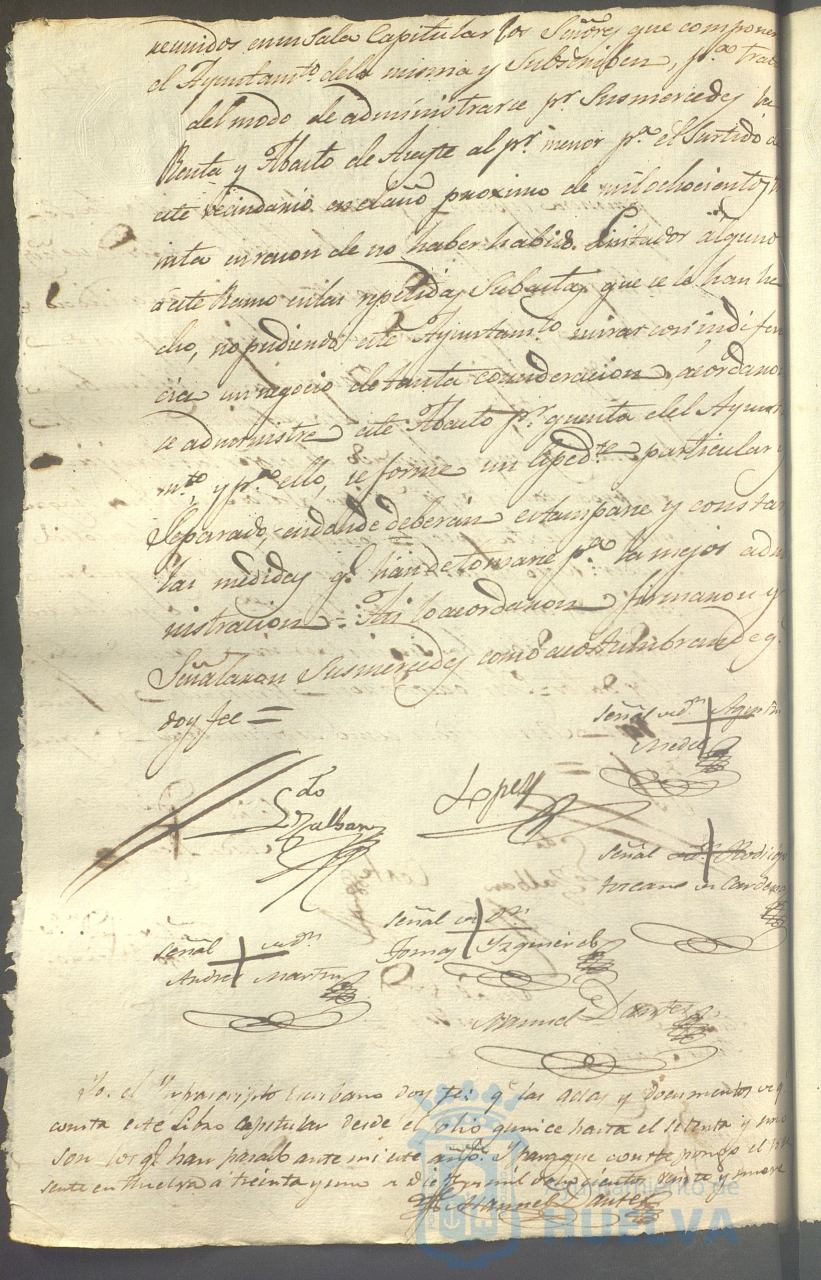 reunidos en su Sala Capitular los Señores que componen
el Ayuntamto dela misma y Subscriben, pa tra
del modo de administrarse pr Susmercedes la
Renta y Abasto de Aceyte al pr menor pa el Surtido de
este vecindario en el año proximo de mil ochocientos
inta en razon de no haber habido Licitador alguno
á este Ramo en las repetidas Subastas que se le han he
cho, no pudiendo este Ayuntamto mirar con indiferen
cia un negocio de tanta consideracion, acordaron
se administre este Abasto pr quenta del Ayunta
mto y pa ello, se forme un Espedte particular y
Separado, en donde deberán estamparse y constar
las medidas qe han de tomarse pa la mejor admi
nistracion = Asi lo acordaron firmaron y
Señalaron Susmercedes como acostumbran de q
doy fee =
Señal de Dn Agustin
Lopez
señal Rodrigo
toscano de Cardenas
señal de Dn
Tomas Yzquierdo
señal de Dn
Andres Martin
Manuel Dantes
Yo el Ynfrascripto Escribano doy fe: qe las actas y documentos de qe
consta este Libro Capitular desde el folio quince hasta el setenta y uno
son los qe han pasado ante mi este año. Y para que conste pongo el pre
sente en Huelva a treinta y uno de Diz mil ochocientos veinte y nueve
Manuel Dantes
Ayuntamiento de
HUELVA